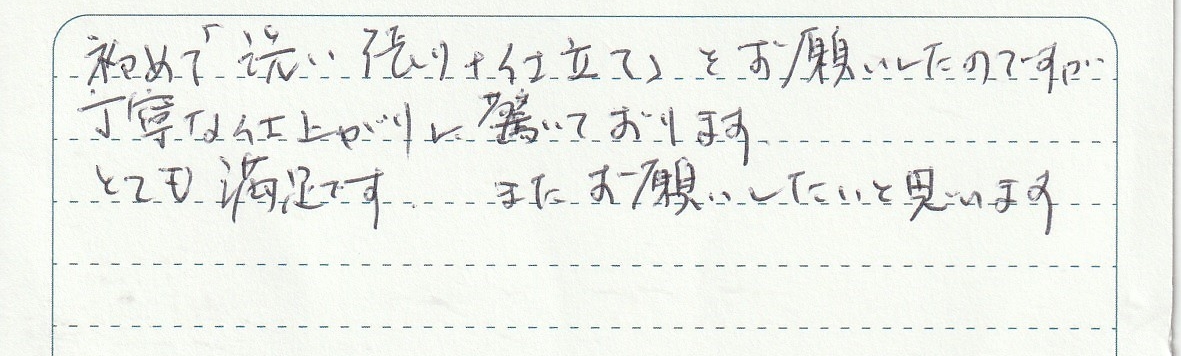 初めて「洗い張り+仕立て」とお願いしたのですが
丁寧な仕上がりに驚いております。
とても満足です。 またお願いしたいと思います